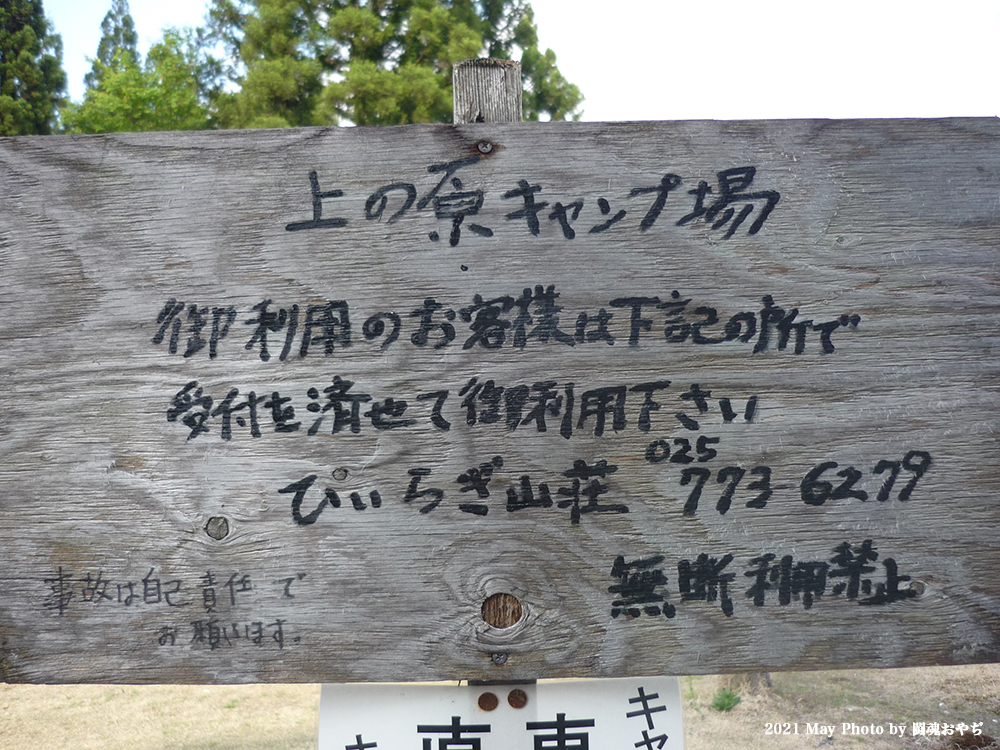 上の原キャンプ場
御利用のお客様は下記の所で
受付を済せて御利用下さい
025
ひいらぎ山荘 773 6279
無断利用禁止
事故は自己責任で
お願いします。
2021 May Photo by 闘魂おやぢ